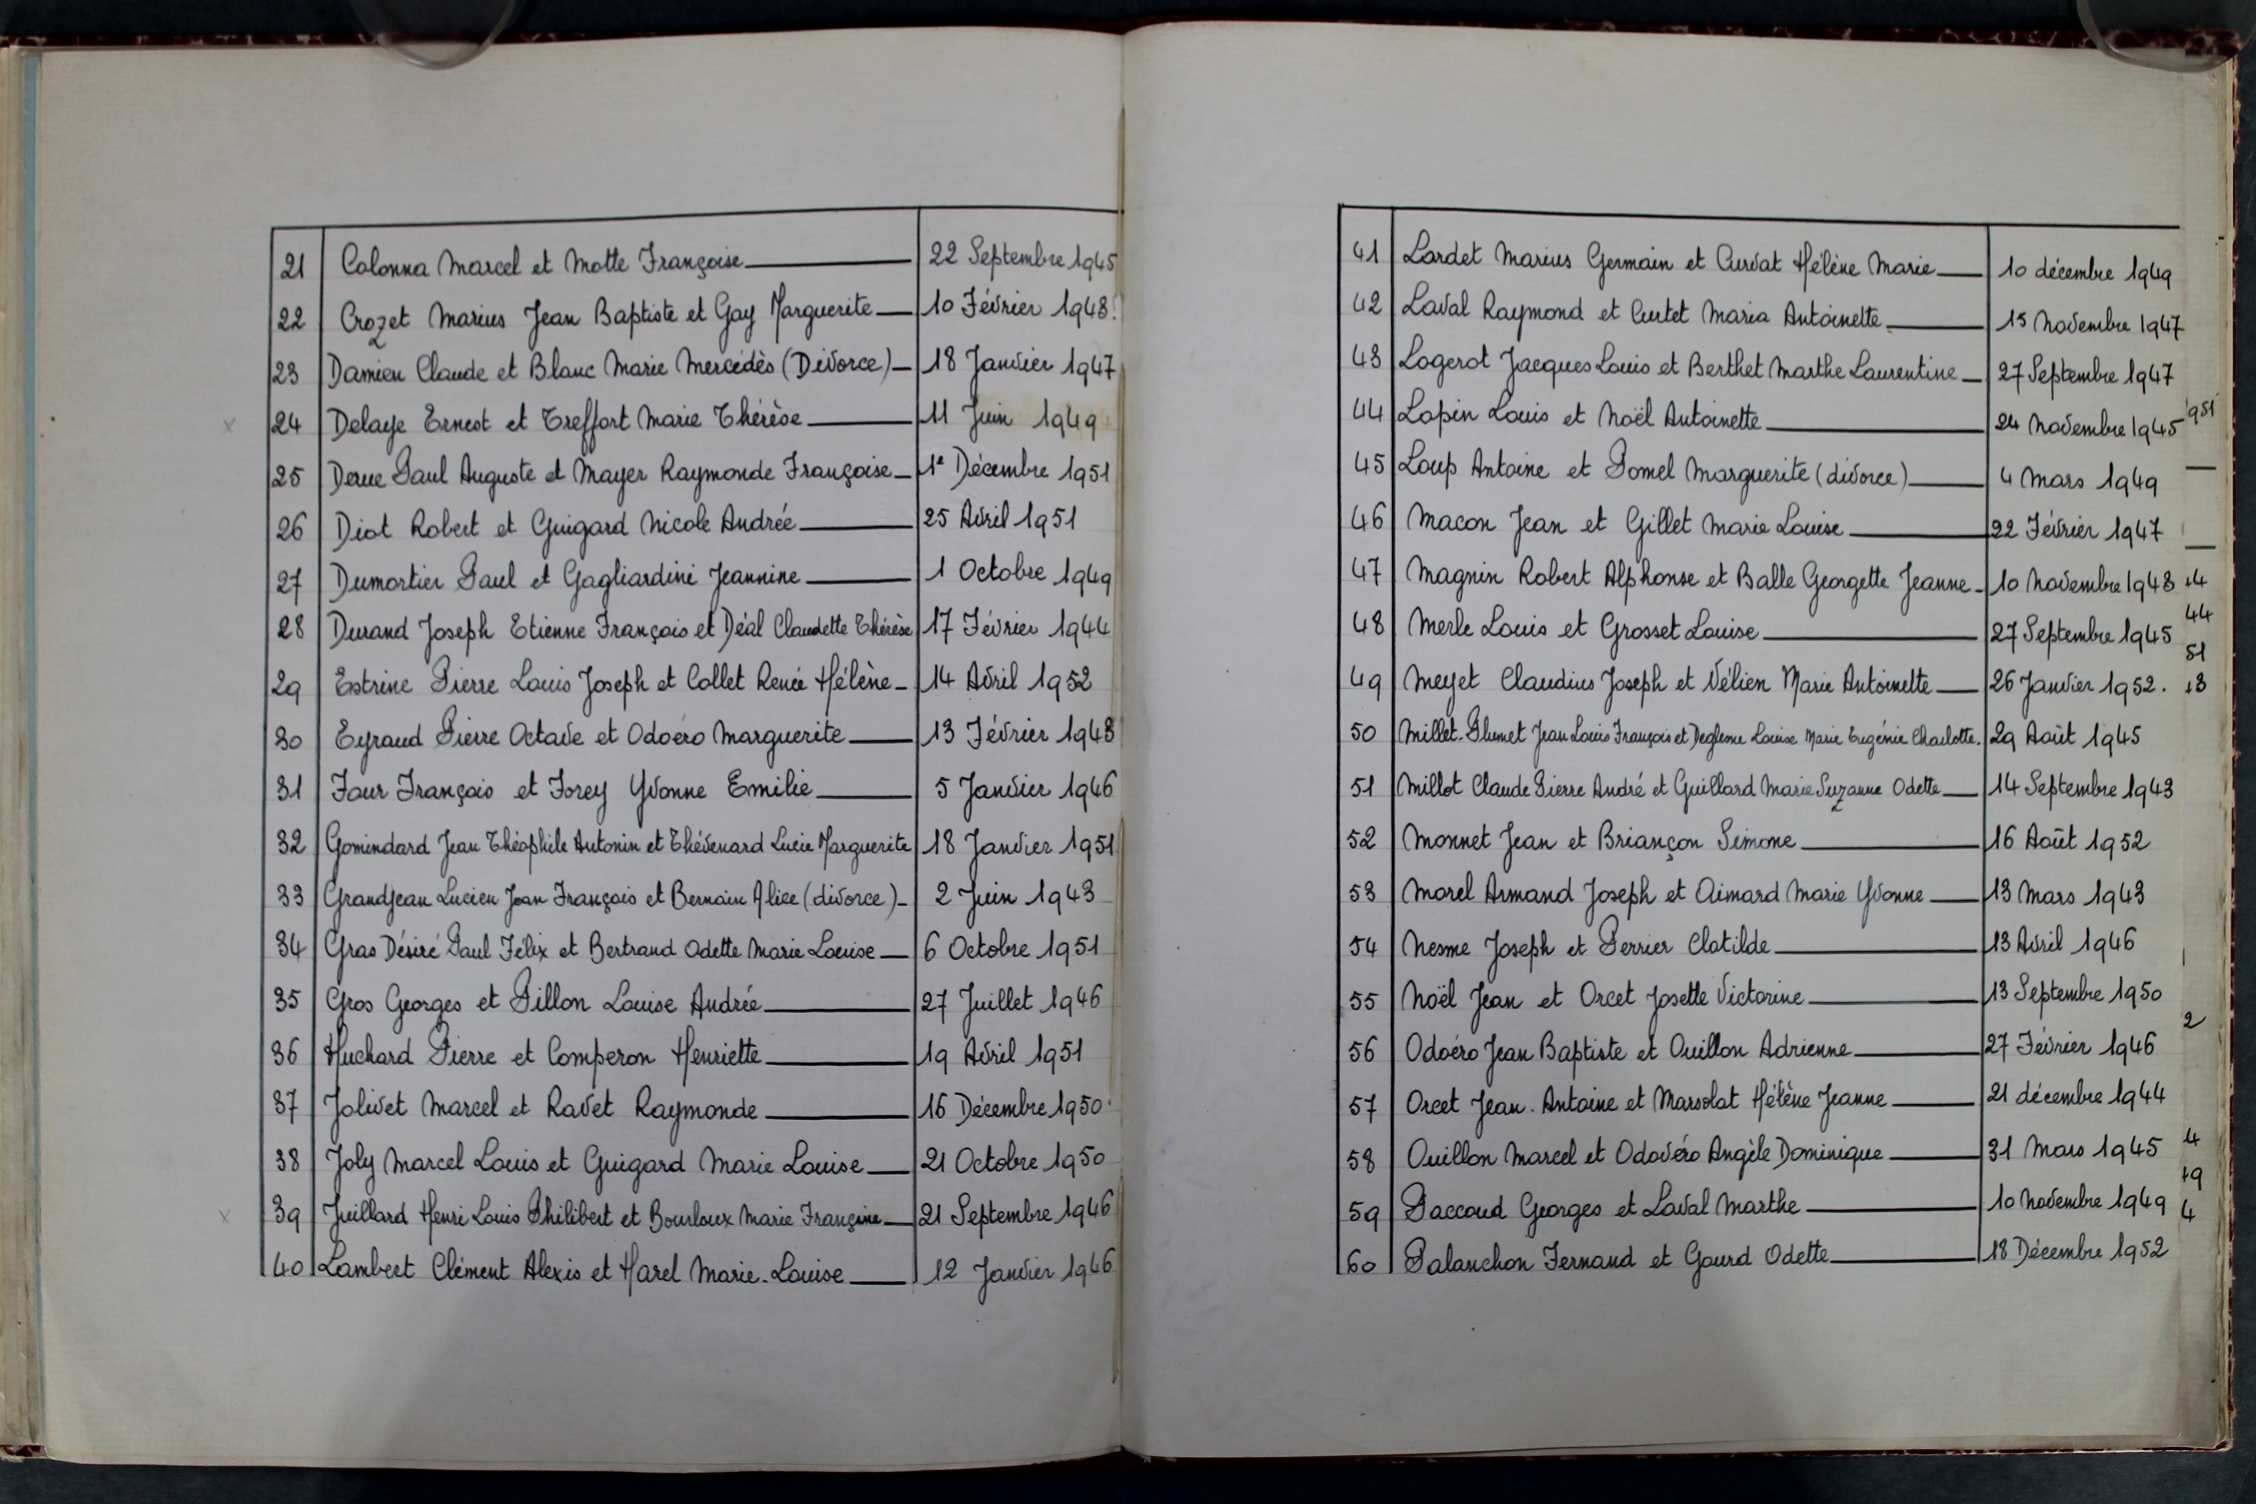 21 Colonna Marcel et Motte Françoise 22 Septembre 1945
22 Crozet Marius Jean Baptiste et Gay Marguerite 10 Février 1948
23 Damien Claude et Blanc Marie Mercédès (Divorce) 18 Janvier 1947
24 Delaye Ernest et Treffort Marie Thérèse 11 Juin 1949
25 Derue Paul Auguste et Mayer Raymonde Françoise 1e Décembre 1951
26 Diot Robert et Guigard Nicole Andrée 25 Avril 1951
27 Dumortier Paul et Gagliardini Jeannine 1 Octobre 1949
28 Durand Joseph Etienne François et Déal Claudette Thérèse 17 Février 1944
29 Estrine Pierre Louis Joseph et Collet Renée Hélène 14 Avril 1952
30 Eyraud Pierre Octave et Odoéro Marguerite 13 Février 1943
31 Faur François et Forey Yvonne Emilie 5 Janvier 1946
32 Gomindard Jean Théophile Antonin et Thévenard Lucie Marguerite 18 Janvier 1951
33 Grandjean Lucien Jean François et Bernain Alice (divorce) 2 Juin 1943
34 Gras Désiré Paul Félix et Bertrand Odette Marie Louise 6 Octobre 1951
35 Gros Georges et Pillon Louise Andrée 27 Juillet 1946
36 Huchard Pierre et Comperon Henriette 19 Avril 1951
37 Jolivet Marcel et Ravet Raymonde 16 Décembre 1950
38 Joly Marcel Louis et Guigard Marie Louise 21 Octobre 1950
39 Juillard Henri Louis Philibert et Bourloux Marie Françine 21 Septembre 1946
40 Lambert Clément Alexis et Harel Marie-Louise 12 Janvier 1946
41 Lardet Marius Germain et Curvat Hélène Marie 10 décembre 1949
42 Laval Raymond et Curtet Maria Antoinette 15 Novembre 1947
43 Logerot Jacques Louis et Berthet Marthe Laurentine 27 Septembre 1947
44 Lopin Louis et Noël Antoinette 24 Novembre 1945
45 Loup Antoine et Pomel Marguerite (divorce) 4 Mars 1949
46 Macon Jean et Gillet Marie Louise 22 Février 1947
47 Magnin Robert Alphonse et Balle Georgette Jeanne 10 Novembre 1948
48 Merle Louis et Grosset Louise 27 Septembre 1945
49 Meyet Claudius Joseph et Vélien Marie Antoinette 26 Janvier 1952.
50 Millet-Plumet Jean Louis François et Louise Marie Eugénie Charlotte. 29 Août 1945
51 Millot Claude Pierre André et Guillard Marie Suzanne Odette 14 Septembre 1943
52 Monnet Jean et Briançon Simone 16 Août 1952
53 Morel Armand Joseph et Aimard Marie Yvonne 13 Mars 1943
54 Nesme Joseph et Perrier Clotilde 13 Avril 1946
55 Noël Jean et Orcet Josette Victorine 13 Septembre 1950
56 Odoéro Jean Baptiste et Ouillon Adrienne 27 Février 1946
57 Orcet Jean-Antoine et Marsolat Hélène Jeanne 21 décembre 1944
58 Ouillon Marcel et Odovéro Angèle Dominique 31 Mars 1945
59 Paccoud Georges et Laval Marthe 10 Novembre 1949
60 Palanchon Fernand et Gourd Odette 18 Décembre 1952